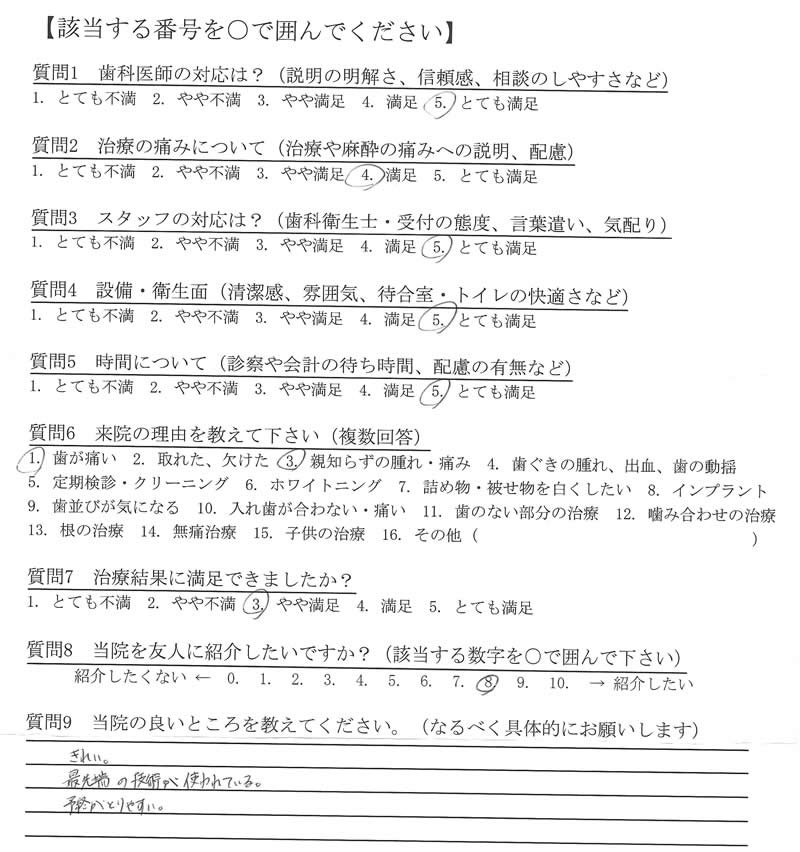 【該当する番号を〇で囲んでください】
質問1　歯科医師の対応は？（説明の明解さ、信頼感、相談のしやすさなど）
1. とても不満 2. やや不満 3. やや満足 4. 満足 5. とても満足
質問2　治療の痛みについて（治療や麻酔の痛みへの説明、配慮）
1. とても不満 2. やや不満 3. やや満足 4. 満足 5. とても満足
質問3　スタッフの対応は？（歯科衛生士・受付の態度、言葉遣い、気配り）
1. とても不満 2. やや不満 3. やや満足 4. 満足 5. とても満足
質問4　設備・衛生面（清潔感、雰囲気、待合室・トイレの快適さなど）
1. とても不満 2. やや不満 3. やや満足 4. 満足 5. とても満足
質問5　時間について（診察や会計の待ち時間、配慮の有無など）
1. とても不満 2. やや不満 3. やや満足 4. 満足 5. とても満足
質問6　来院の理由を教えて下さい（複数回答）
1. 歯が痛い 2. 取れた、欠けた 3. 親知らずの腫れ・痛み 4. 歯ぐきの腫れ、出血、歯の動揺
5. 定期検診・クリーニング 6. ホワイトニング 7. 詰め物・被せ物を白くしたい 8. インプラント
9. 歯並びが気になる 10. 入れ歯が合わない・痛い 11. 歯のない部分の治療 12. 噛み合わせの治療
13. 根の治療 14. 無痛治療 15. 子供の治療 16. その他（　　　　　　　　　　　　　　　）
質問7　治療結果に満足できましたか？
1. とても不満 2. やや不満 3. やや満足 4. 満足 5. とても満足
質問8　当院を友人に紹介したいですか？（該当する数字を〇で囲んで下さい）
紹介したくない ← 0. 1. 2. 3. 4. 5. 6. 7. 8. 9. 10. → 紹介したい
質問9　当院の良いところを教えてください。（なるべく具体的にお願いします）
きれい。
最先端の技術が使われている。
予約がとりやすい。